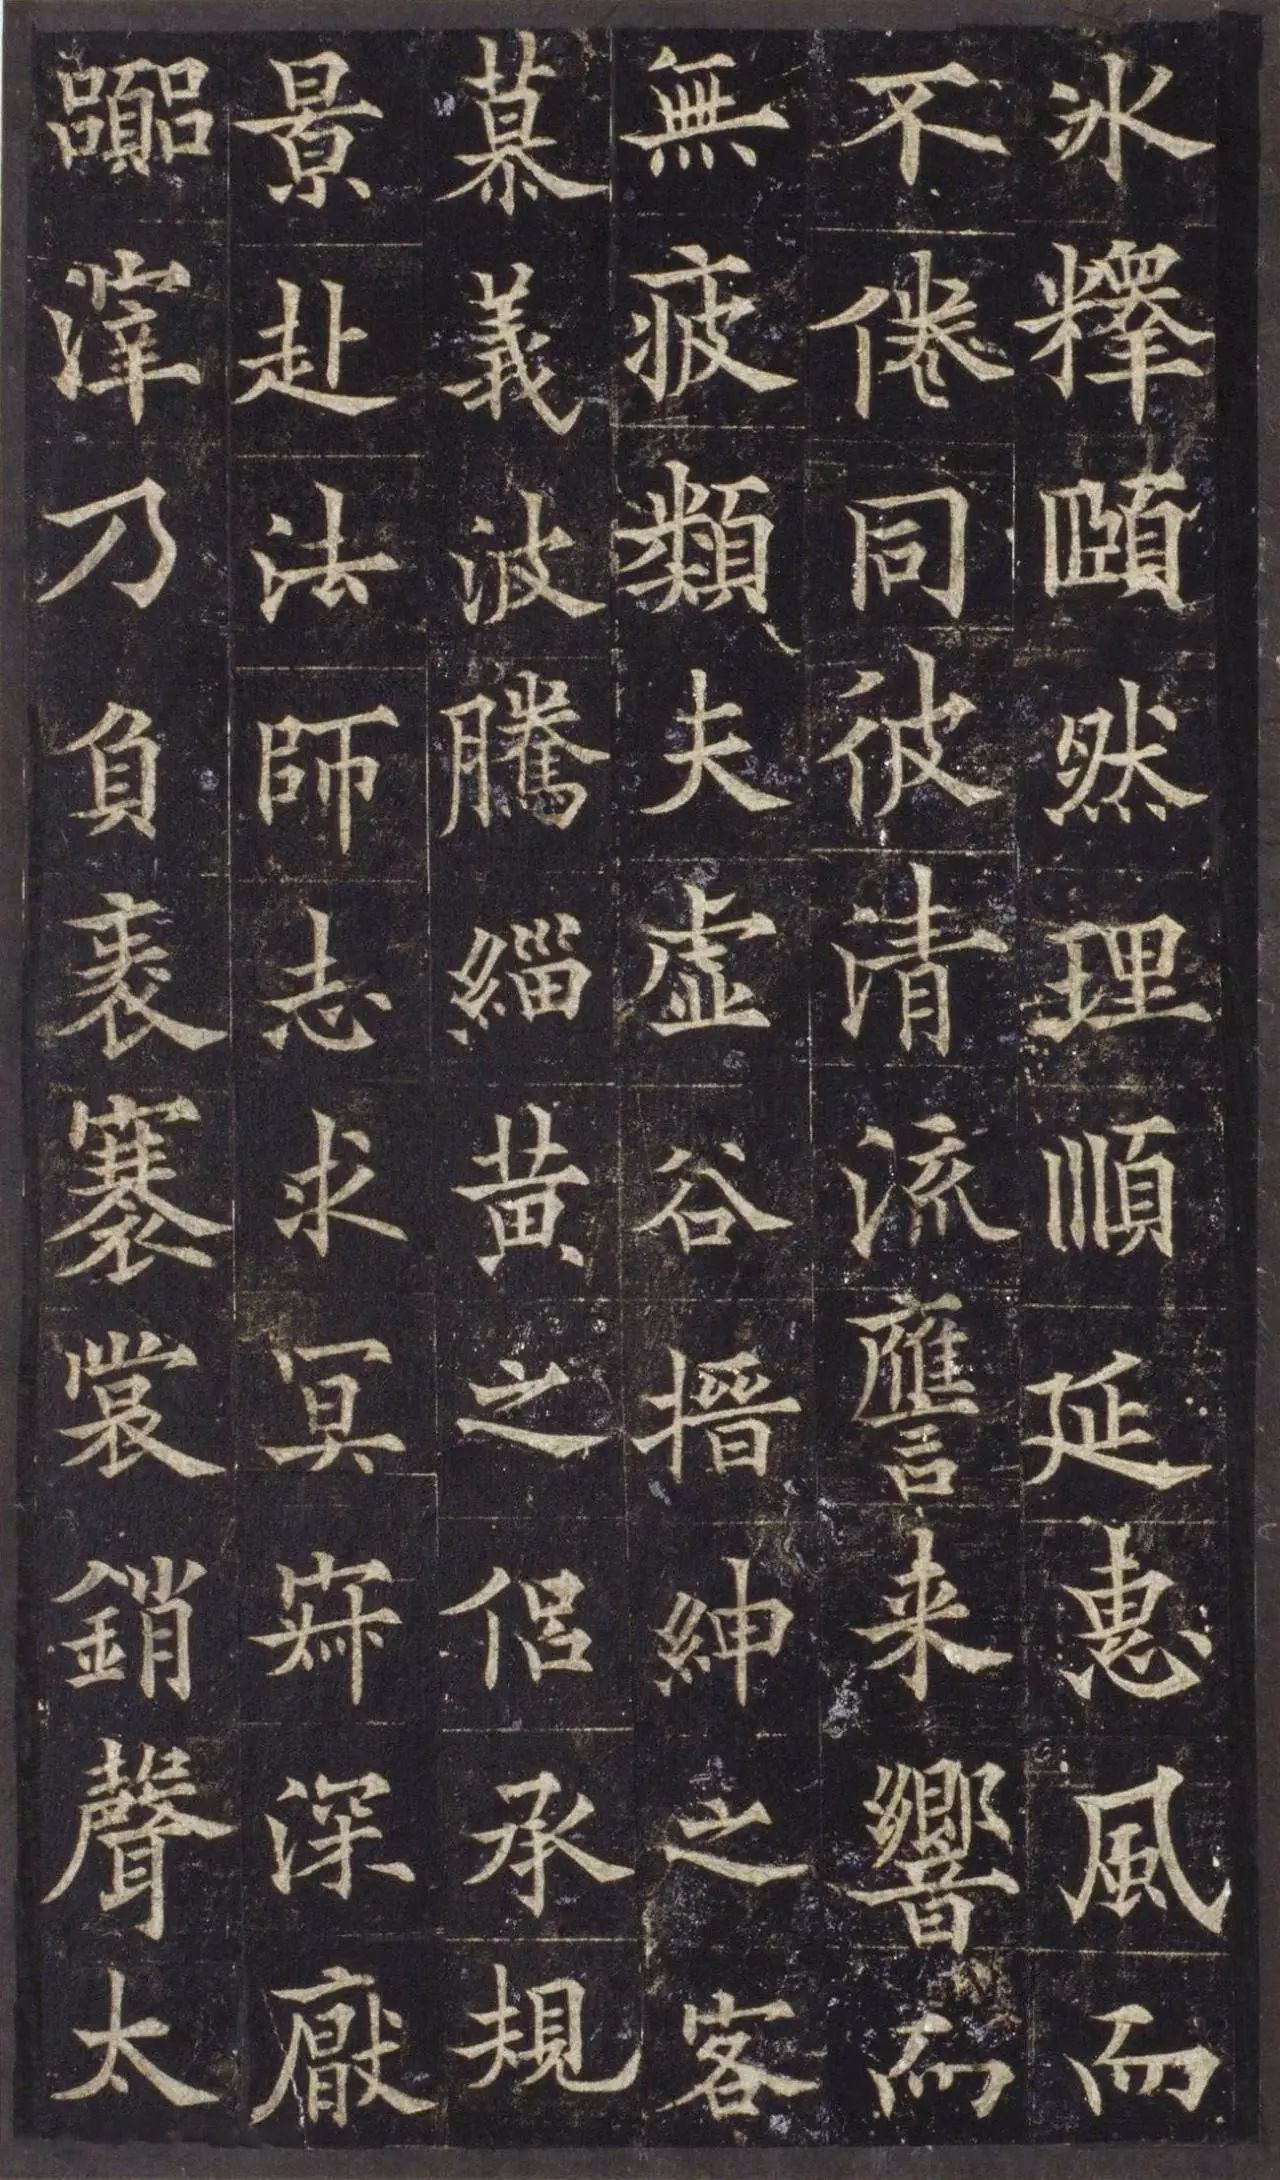 氷釋頤然理順延惠風而
不倦同彼清流應言来響而
無疲類夫虛谷搢紳之
客慕義波騰緇黄之侶承規
景赴法師志求冥寂深厭
囂滓乃負袠褰裳銷聲太